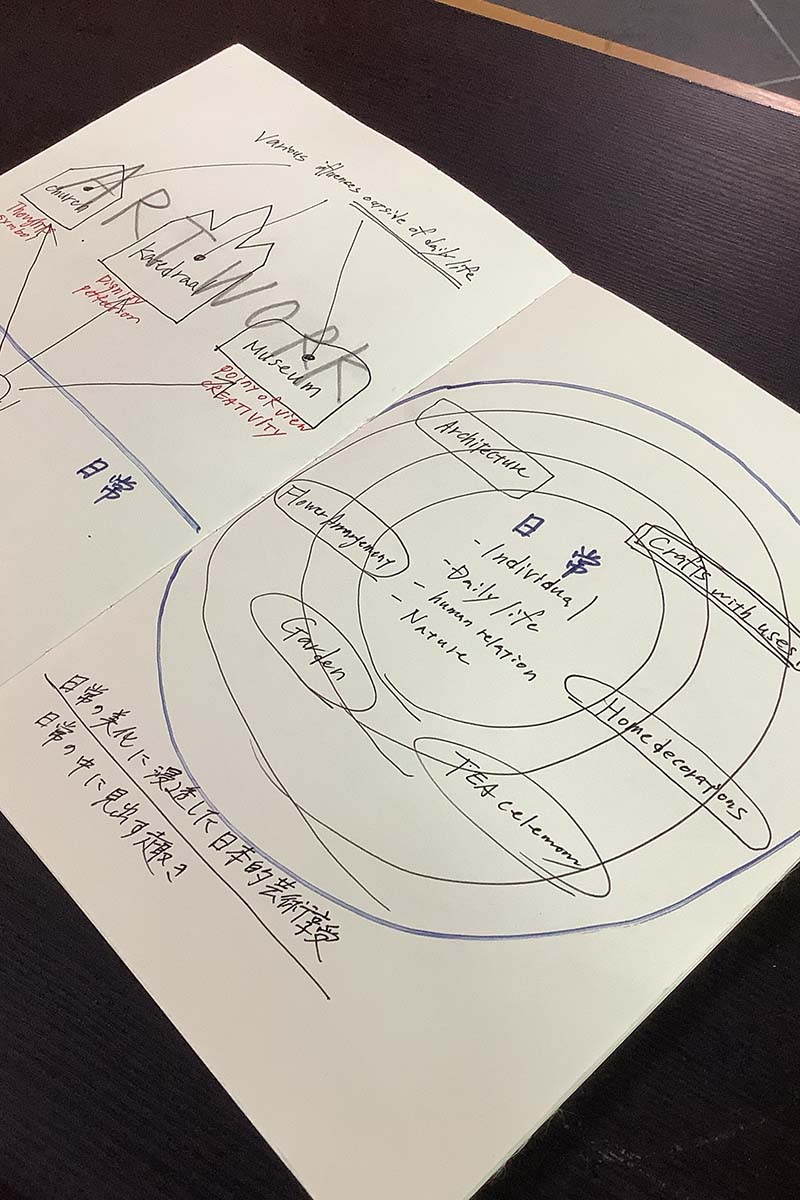 Various influences outside of daily life
ART WORK
church
Thought
symbol
Katedraal
Dignity
Museum
point of view
CREATIVITY
日常
Architecture
Flower Arrangement
日常
- Individual
- Daily life
- human relation
- Nature
Crafts with uses
Garden
Home decorations
TEA
日常の美化に浸透した日本的芸術享受
日常の中に見出す趣き